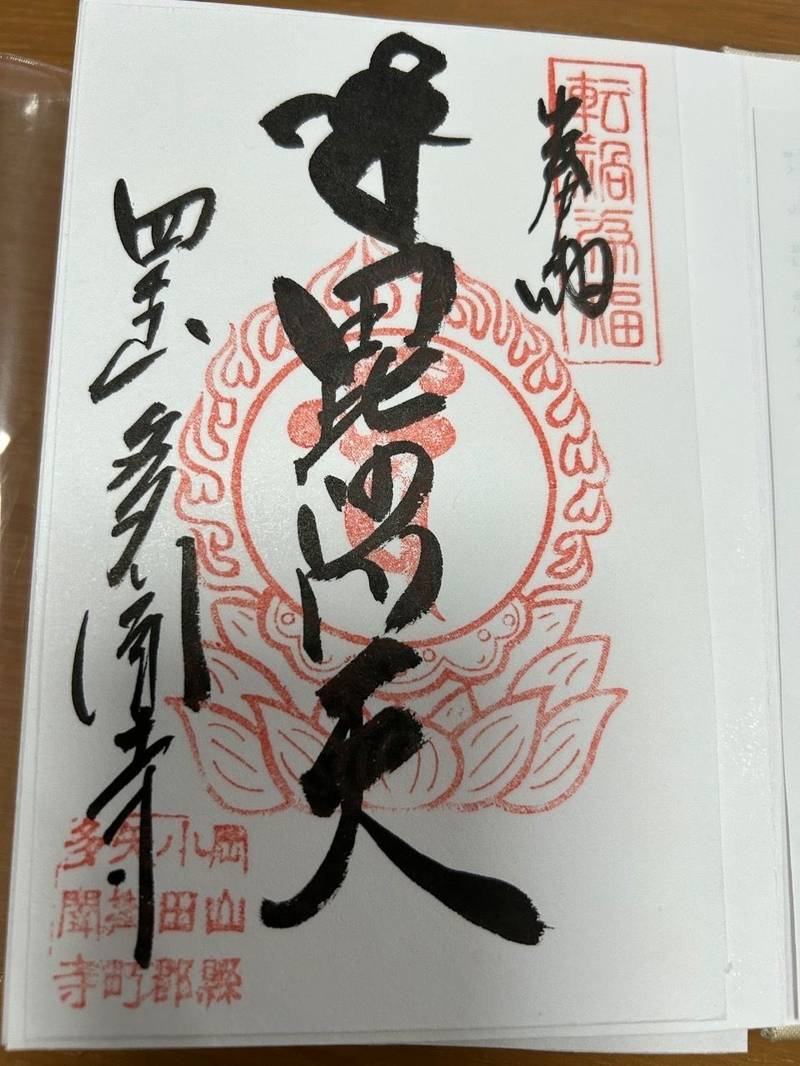 転禍福
奉
毘沙門天
四王山 多聞寺
岡山縣
小田郡
矢掛町
多聞寺